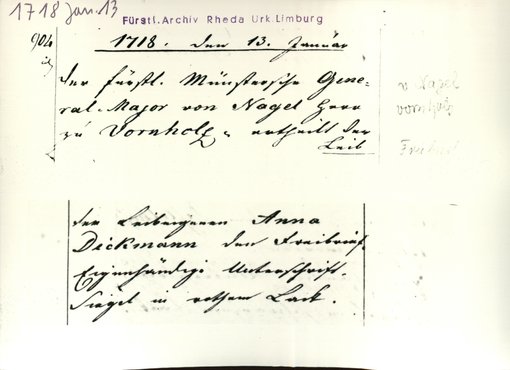 1718 Jan. 13
Fürstl. Archiv Rheda Urk. Limburg
904
1718. den 13. Januar
der fürstl. Münstersche Gene-
ral-Major von Nagel Herr
zu Vornholz, ertheilt der
Leib
v Nagel
Vornholz
Freibrief
der Leibeigenen Anna
Dickmann den Freibrief.
Eigenhändige Unterschrift.
Siegel in rothem Lack.